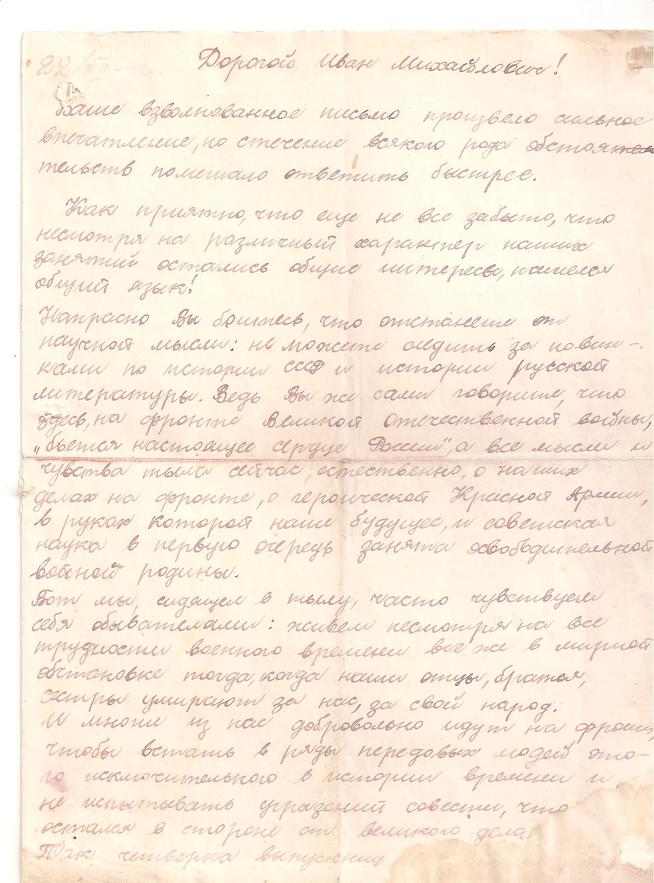 22/XII-42г.
Дорогой Иван Михайлович!
Ваше взволнованное письмо произвело сильное
впечатление, но стечение всякого рода обстоя
тельств помешало ответить быстрее.
Как приятно, что еще не все забыто, что
несмотря на различный характер наших
занятий остались общие интересы, нашелся
общий язык!
Напрасно Вы боитесь, что отстанете от
научной мысли: не можете следить за новин-
ками по истории СССР и истории русской
литературы. Ведь Вы же сами говорите, что
здесь, на фронте Великой отечественной войны,
„бьется настоящее сердце России", а все мысли и
чувства тыла сейчас, естественно, о наших
делах на фронте, о героической Красной Армии,
в руках которой наше будущее, и советская
наука в первую очередь занята освободительной
войной родины.
Вот мы, сидящие в тылу, часто чувствуем
себя обывателями: живем несмотря на все
трудности военного времени все же в мирной
обстановке тогда, когда наши отцы, братья,
сестры умирают за нас, за свой народ.
И многие из нас добровольно идут на фронт,
чтобы встать в ряды передовых людей это-
го исключительного в истории времени и
не испытывать угрызений совести, что
остался в стороне от великого дела.
Так четверка выпускниц